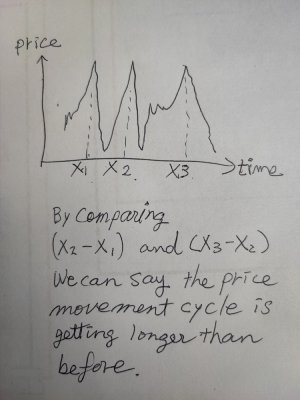 price
X1 X2 X3 time
By Comparing
(X2-X1) and (X3-X2)
We can say the price
movement cycle is
getting longer than
before.